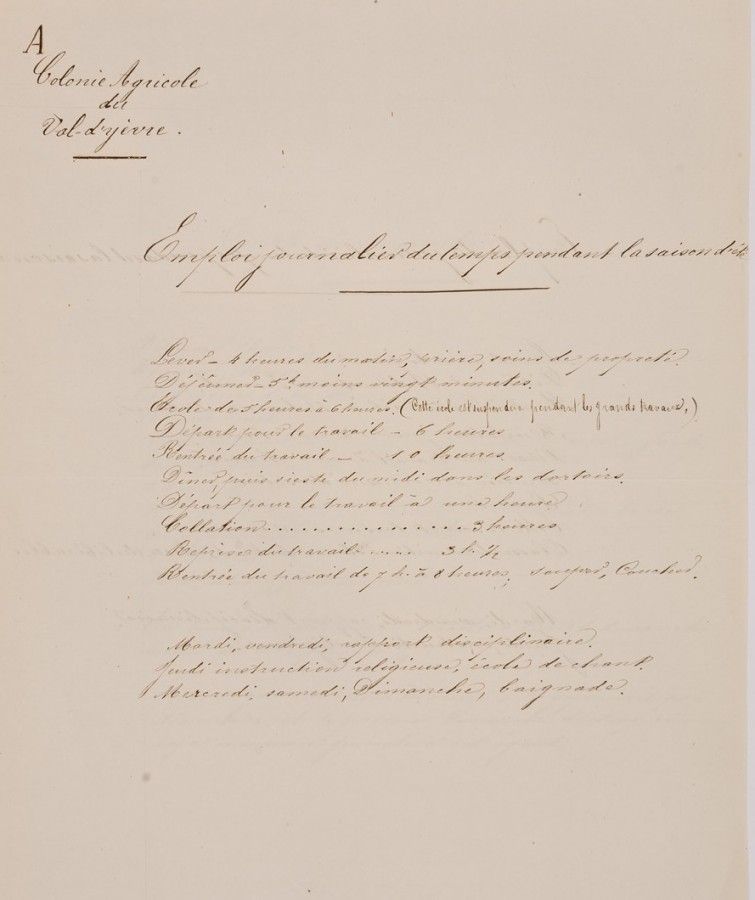 A
Colonie Agricole
du
Val-d'yèvre.
Emploi journalier du temps pendant la saison d'été
Lever - 4 heures du matin, prière, soins de propreté.
Déjeuner - 5h. moins vingt minutes.
Ecole de 5 heures à 6 heures. (Cette école est suspendue pendant les grands travaux.)
Départ pour le travail - 6 heures
Rentrée du travail - 10 heures
Dîner, puis sieste du midi dans les dortoirs.
Départ pour le travail à une heure
Collation................3 heures
Reprise du travail..... 3 h. 1/2
Rentrée du travail de 7 h. à 8 heures, souper, Coucher.
Mardi, vendredi, rapport disciplinaire.
Jeudi instruction religieuse, école de chant.
Mercredi, samedi, Dimanche, baignade.